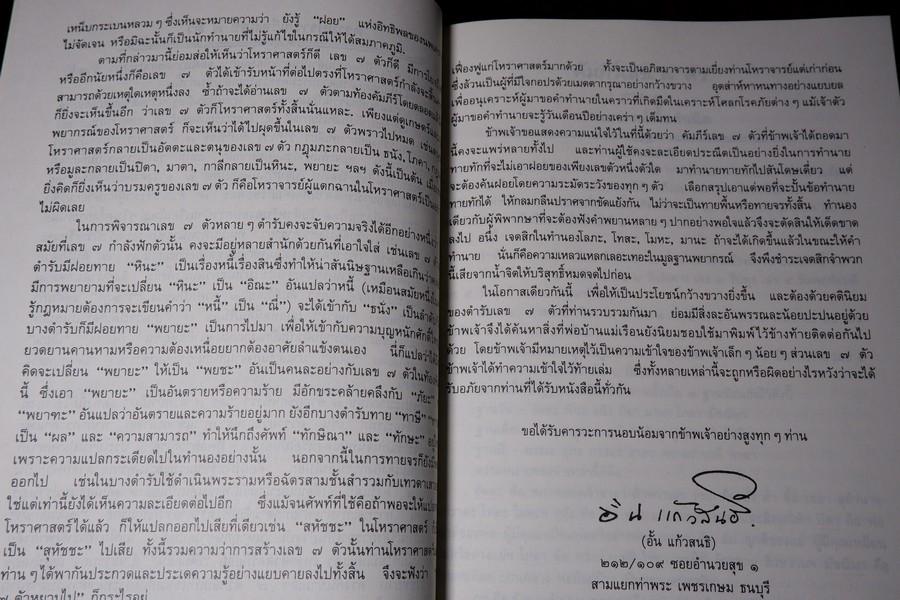 เหน็บกระเบนหลวม ๆ ซึ่งเห็นจะหมายความว่า ยังรู้ “ฝอย” แห่งอิทธิพลของ
ไม่จัดเจน หรือมิฉะนั้นก็เป็นนักทำนายที่ไม่รู้แก้ไขในกรณีให้ได้สมภาคภูมิ.
ตามที่กล่าวมานี้ย่อมส่อให้เห็นว่าโหราศาสตร์ก็ดี เลข ๗ ตัวก็ดี มีการ
หรืออีกนัยหนึ่งก็คือเลข ๗ ตัวได้เข้ารับหน้าที่ต่อไปตรงที่โหราศาสตร์กำลังจะ
สามารถด้วยเหตุใดเหตุหนึ่งลง ซ้ำถ้าจะได้อ่านเลข ๗ ตัวตามท้องคัมภีร์โดยตลอด
ก็ยิ่งจะเห็นขึ้นอีก ว่าเลข ๗ ตัวก็โหราศาสตร์ทั้งสิ้นนั่นแหละ. เพียงแต่
พยากรณ์ของโหราศาสตร์ ก็จะเห็นว่าได้ไปผุดขึ้นในเลข ๗ ตัวพราวไปหมด
โหราศาสตร์กลายเป็นอัตตะและตนุของเลข ๗ ตัว กฎุมภะกลายเป็น ธนัง, โภคา,
หรือมูละกลายเป็นปิตา, มาตา, กาลีกลายเป็นหินะ, พยายะ ฯลฯ ดังนี้เป็นต้น
ยิ่งคิดก็ยิ่งเห็นว่าบรมครูของเลข ๗ ตัว ก็คือโหราจารย์ผู้แตกฉานในโหราศาสตร์
ไม่ผิดเลย
ในการพิจารณาเลข ๗ ตัวหลาย ๆ ตำรับคงจะจับความจริงได้อีกอย่างหนึ่ง
สมัยที่เลข ๗ กำลังฟักตัวนั้น คงจะมีอยู่หลายสำนักด้วยกันที่เอาใจใส่ เช่นเลข ๗
ตำรับมีฝอยทาย “หินะ” เป็นเรื่องหนี้เรื่องสินซึ่งทำให้น่าสันนิษฐานเหลือเกิน
มีการพยายามที่จะเปลี่ยน “หินะ” เป็น “อิณะ” อันแปลว่าหนี้ (เหมือนสมัยหนึ่ง
รู้กฎหมายต้องการจะเขียนคำว่า “หนี้” เป็น “ณี่”) จะได้เข้ากับ “ธนัง”
บางตำรับก็มีฝอยทาย “พยายะ” เป็นการไปมา เพื่อให้เข้ากับความบุญหนักศักดิ์
ยวดยานคานหามหรือความต้องเหนื่อยยากต้องอาศัยลำแข้งตนเอง นี่ก็แปลว่า
คิดจะเปลี่ยน “พยายะ” ให้เป็น “พยชะ” อันเป็นคนละอย่างกับเลข ๗ ตัวใน
นี้ ซึ่งเอา “พยายะ” เป็นอันตรายหรือความร้าย มีอักขระคล้ายคลึงกับ
“พยาฑะ” อันแปลว่าอันตรายและความร้ายอยู่มาก ยังอีกบางตำรับทาย “ทาษี”
เป็น “ผล” และ “ความสามารถ” ทำให้นึกถึงศัพท์ “ทักษิณา” และ “ทักษะ”
เพราะความแปลกกระเดียดไปในทำนองอย่างนั้น นอกจากนี้ในการทายจรก็ยัง
ออกไป เช่นในบางตำรับใช้ดำเนินพระรามหรือฉัตรสามชั้นสำรวมกับเทวดา
ใช่แต่เท่านี้ยังได้เห็นความละเอียดต่อไปอีก ซึ่งแม้จนศัพท์ที่ใช้คือถ้าพอจะให้
โหราศาสตร์ได้แล้ว ก็ให้แปลกออกไปเสียที่เดียวเช่น “สหัชชะ” ในโหราศาสตร์
เป็น “สุหัชชะ” ไปเสีย ทั้งนี้รวมความว่าการสร้างเลข ๗ ตัวนั้นท่านโหราศาสตร์
ท่าน ๆ ได้พากันประกวดและประเดความรู้อย่างแยบคายลงไปทั้งสิ้น จึงจะฟังว่า
๗ ตัวหยาบไป” ก็กระไรอยู่
เฟื่องฟูแก่โหราศาสตร์มากด้วย ทั้งจะเป็นอภิสมาจารตามเยี่ยงท่านโหราจารย์แต่เก่าก่อน
ซึ่งล้วนเป็นผู้ที่มีใจกอปรด้วยเมตตากรุณาอย่างกว้างขวาง อุตส่าห์หาหนทางอย่างแยบยล
เพื่ออนุเคราะห์ผู้มาขอคำทำนายในคราวที่เกิดมืดในเคราะห์โศลกโรคภัยต่าง ๆ แม้เจ้าตัว
ผู้มาขอคำทำนายจะรู้วันเดือนปีอย่างเคร่า ๆ เต็มทน
ข้าพเจ้าขอแสดงความแน่ใจไว้ในที่นี้ด้วยว่า คัมภีร์เลข ๗ ตัวที่ข้าพเจ้าได้ถอดมา
นี้คงจะแพร่หลายทั่วไป และท่านผู้ใช้คงจะละเอียดประณีตเป็นอย่างยิ่งในการทำนาย
ทายทักที่จะไม่เอาฝอยของเพียงเลขตัวหนึ่งตัวใด มาทำนายทายทักไปสันโดษเดียว แต่
จะต้องค้นฝอยโดยความระมัดระวังของทุก ๆ ตัว เลือกสรุปเอาแต่พอที่จะปั้นข้อทำนาย
ทายทักได้ ให้กลมกลืนปราศจากขัดแย้งกัน ไม่ว่าจะเป็นทายพื้นหรือทายจรทั้งสิ้น ทำนอง
เดียวกับผู้พิพากษาที่จะต้องฟังคำพยานหลาย ๆ ปากอย่างพอใจแล้วจึงจะตัดสินให้เด็ดขาด
ลงไป อนึ่ง เจตสิกในทำนองโลภะ, โทสะ, โมหะ, มานะ ถ้าจะได้เกิดขึ้นแล้วในขณะให้คำ
ทำนาย นั่นก็คือความเหลวแหลกเลอะเทอะในมูลฐานพยากรณ์ จึงพึงชำระเจตสิกจำพวก
นี้เสียจากน้ำจิตให้บริสุทธิ์หมดจดไปก่อน
ในโอกาสเดียวกันนี้ เพื่อให้เป็นประโยชน์กว้างขวางยิ่งขึ้น และต้องด้วยคตินิยม
ของตำรับเลข ๗ ตัวที่ท่านรวบรวมกันมา ย่อมมีสิ่งละอันพรรณละน้อยปะปนอยู่ด้วย
ข้าพเจ้าจึงได้ค้นหาสิ่งที่พ่อบ้านแม่เรือนยังนิยมชอบใช้มาพิมพ์ไว้ข้างท้ายติดต่อกันไป
ด้วย โดยข้าพเจ้ามีหมายเหตุไว้เป็นความเข้าใจของข้าพเจ้าเล็ก ๆ น้อย ๆ ส่วนเลข ๗ ตัว
ข้าพเจ้าได้ทำความเข้าใจไว้ท้ายเล่ม ซึ่งทั้งหลายเหล่านี้จะถูกหรือผิดอย่างไรหวังว่าจะได้
รับอภัยจากท่านที่ได้รับหนังสือนี้ทั่วกัน
ขอได้รับคารวะการนอบน้อมจากข้าพเจ้าอย่างสูงทุก ๆ ท่าน
อั้น แก้วสนธิ.
(อั้น แก้วสนธิ)
๒๑๒/๑๐๙ ซอยอำนวยสุข ๑
สามแยกท่าพระ เพชรเกษม ธนบุรี